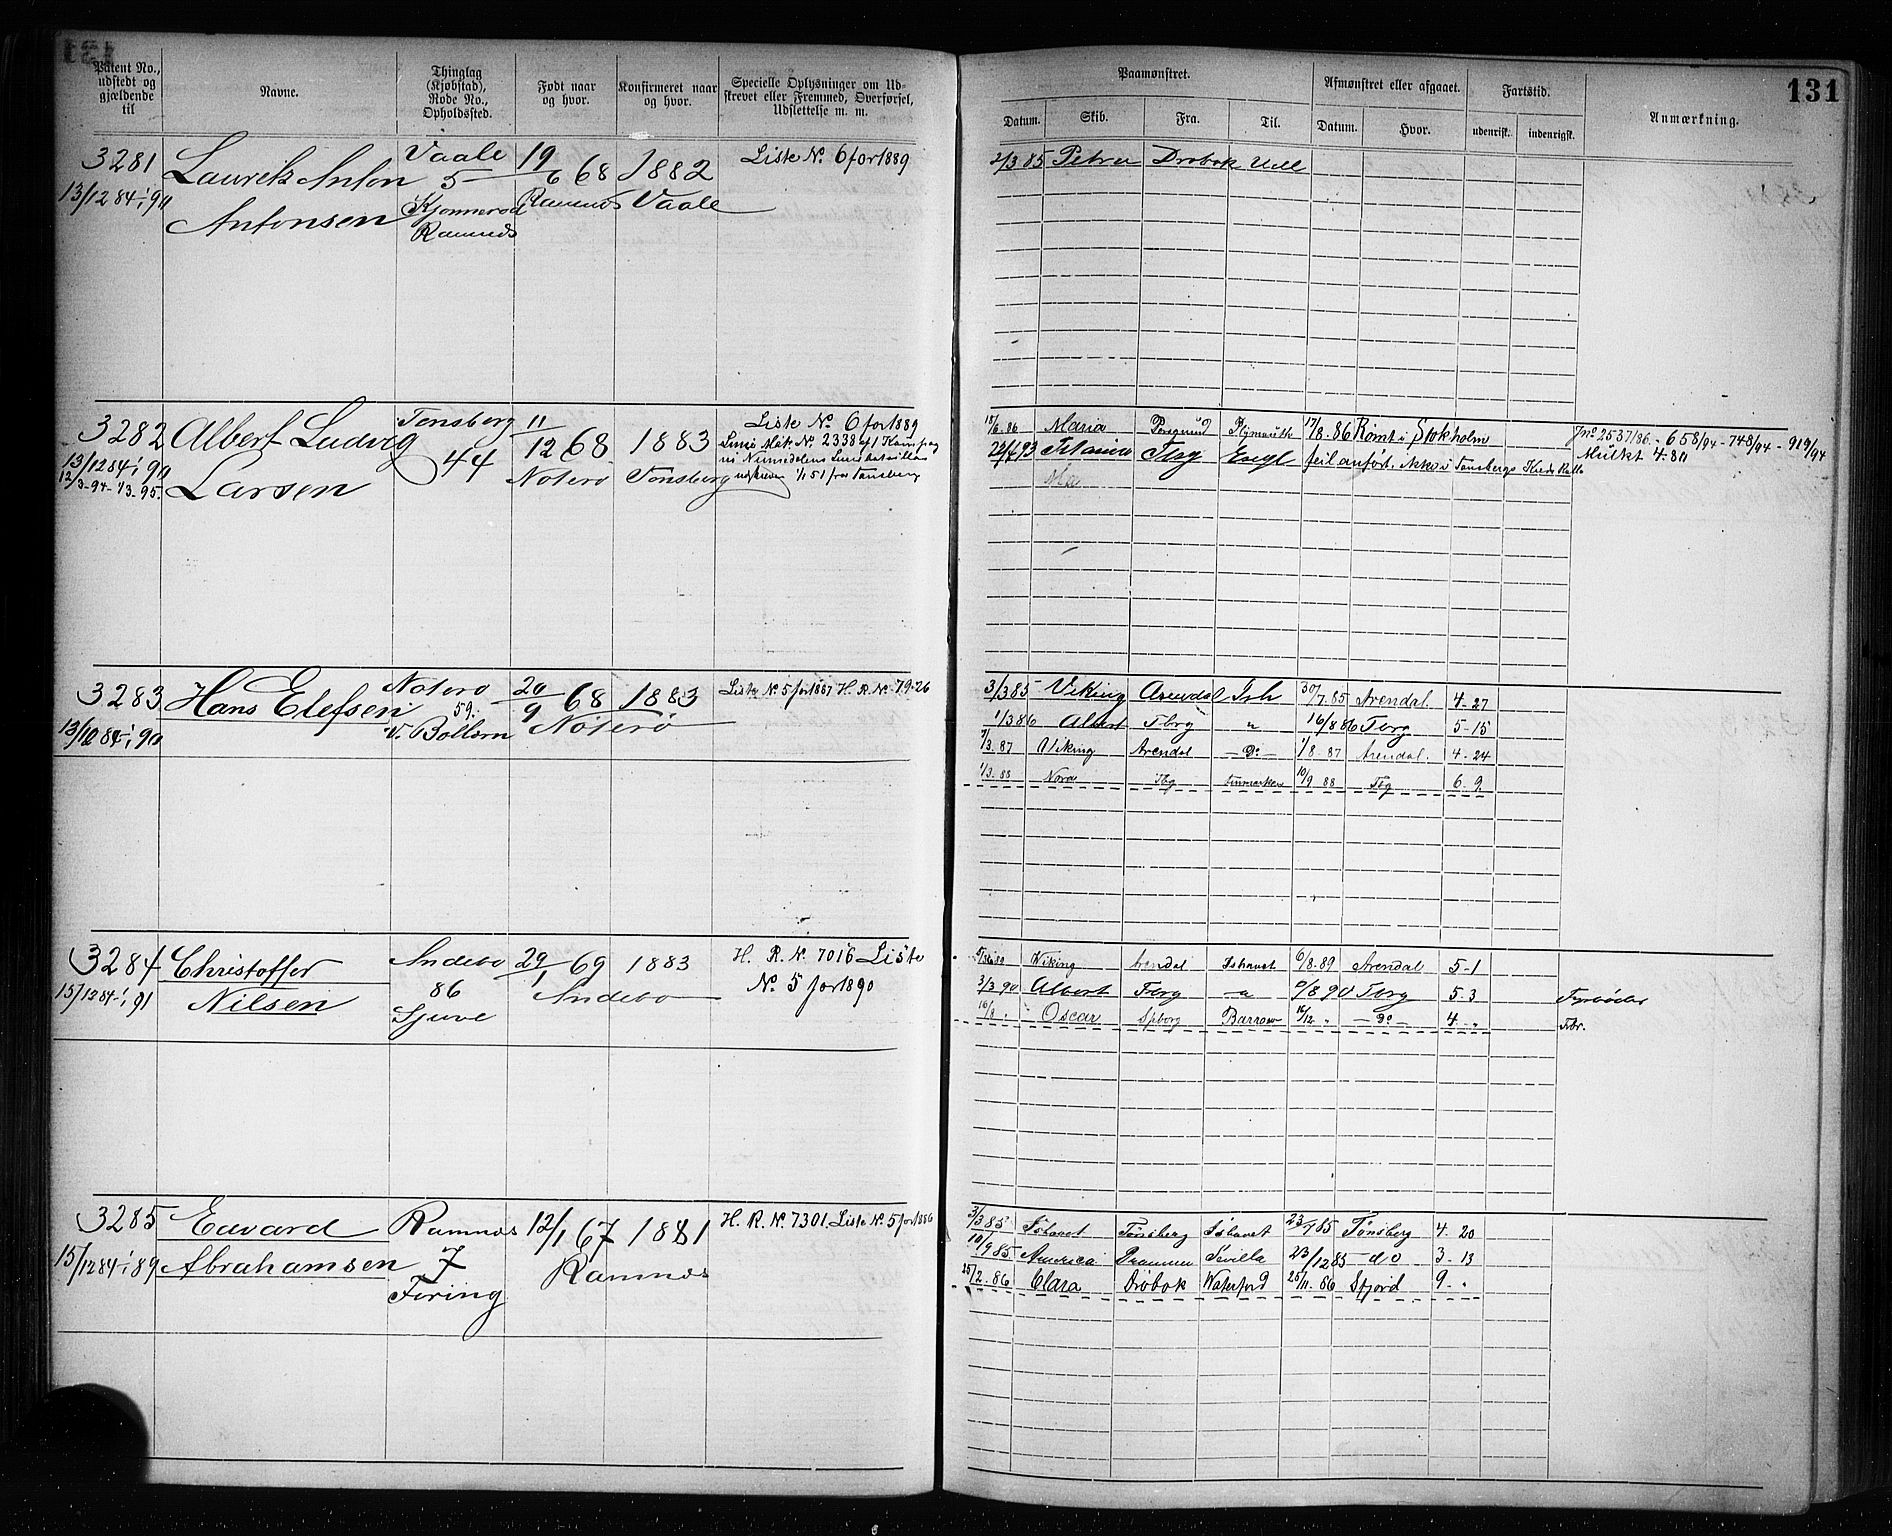 131
Patent No., udstedt og gjældende til
Navne.
Thinglag (Kjøbstad), Rode No., Opholdssted.
Født naar og hvor.
Konfirmeret naar og hvor.
Specielle Oplysninger om Udskrevet eller Fremmed, Overførsel, Udslettelse m. m.
Paamønstret.
Afmønstret eller afgaaet.
Fartstid.
Anmærkning.
Datum. Skib. Fra. Til. Datum. Hvor. udenrigsk. indenrigsk.
3281 Laurits Anton Vaale 19/6 68 1882 Liste No. 6 for 1889
13/12 84 i 90 Antonsen 5 Ramnæs Vaale
Ramnæs
2/3 85 Petra Drobak
3282 Albert Ludvig Tønsberg 11/12 68 1883 Liste No. 6 for 1889
13/12 84 i 90 Larsen 44 Noterø Tønsberg
12/3-94-1/3.95.
18/6.86 Maria Plymouth 17/8.86 Rømt i Stokholm Jno 2537/86. - 658/94 - 748/94 - 919/94
Tbrg Engl feil anført, ikke i Mulkt 4.80
3283 Hans Elefsen Noterø 20/9 68 1883 Liste No. 5 for 1887 H. R. No. 79.26
59. Noterø
V. Bollærn
3/3 85 Viking Arendal Ish 30/7.85 Arendal. 4-27
1/3 86 Albert Tbrg " 16/8 86 Tbrg 5-15
7/3.87 Viking Arendal - Do - 1/8-87 Arendal. 4-24
1/3.88 Nora Tbg 10/9 88 Tbg 6.9
3284 Christoffer Andebo 29/1 69 1883 H. R. No. 7016 Liste
15/12 84 i 91 Nilsen 86 Andebo No. 5 for 1890
Sjuve
Viking Arendal Ishavet 6/8.89 Arendal 5-1
3/3.90 Albert Tbrg 90 Tbrg 5.3 Fyrbøder
16/8 " Oscar Spborg Barrow - Do - 4 - " Fbr.
3285 Edvard Ramnæs 12/1 67 1881 H. R. No. 7301. Liste No. 5 for 1886
15/12 84 i 89 Abrahamsen 7 Ramnæs
Foring
3/3 85 Ishavet Tønsberg Ishavet 23/7 85 Tønsberg 4. 20
10/9 85 America Drammen Sevilla 23/12 85 - do 3. 13
25/2.86 Clara Drøbak Waterford 25/11.86 Sfjord 9. "